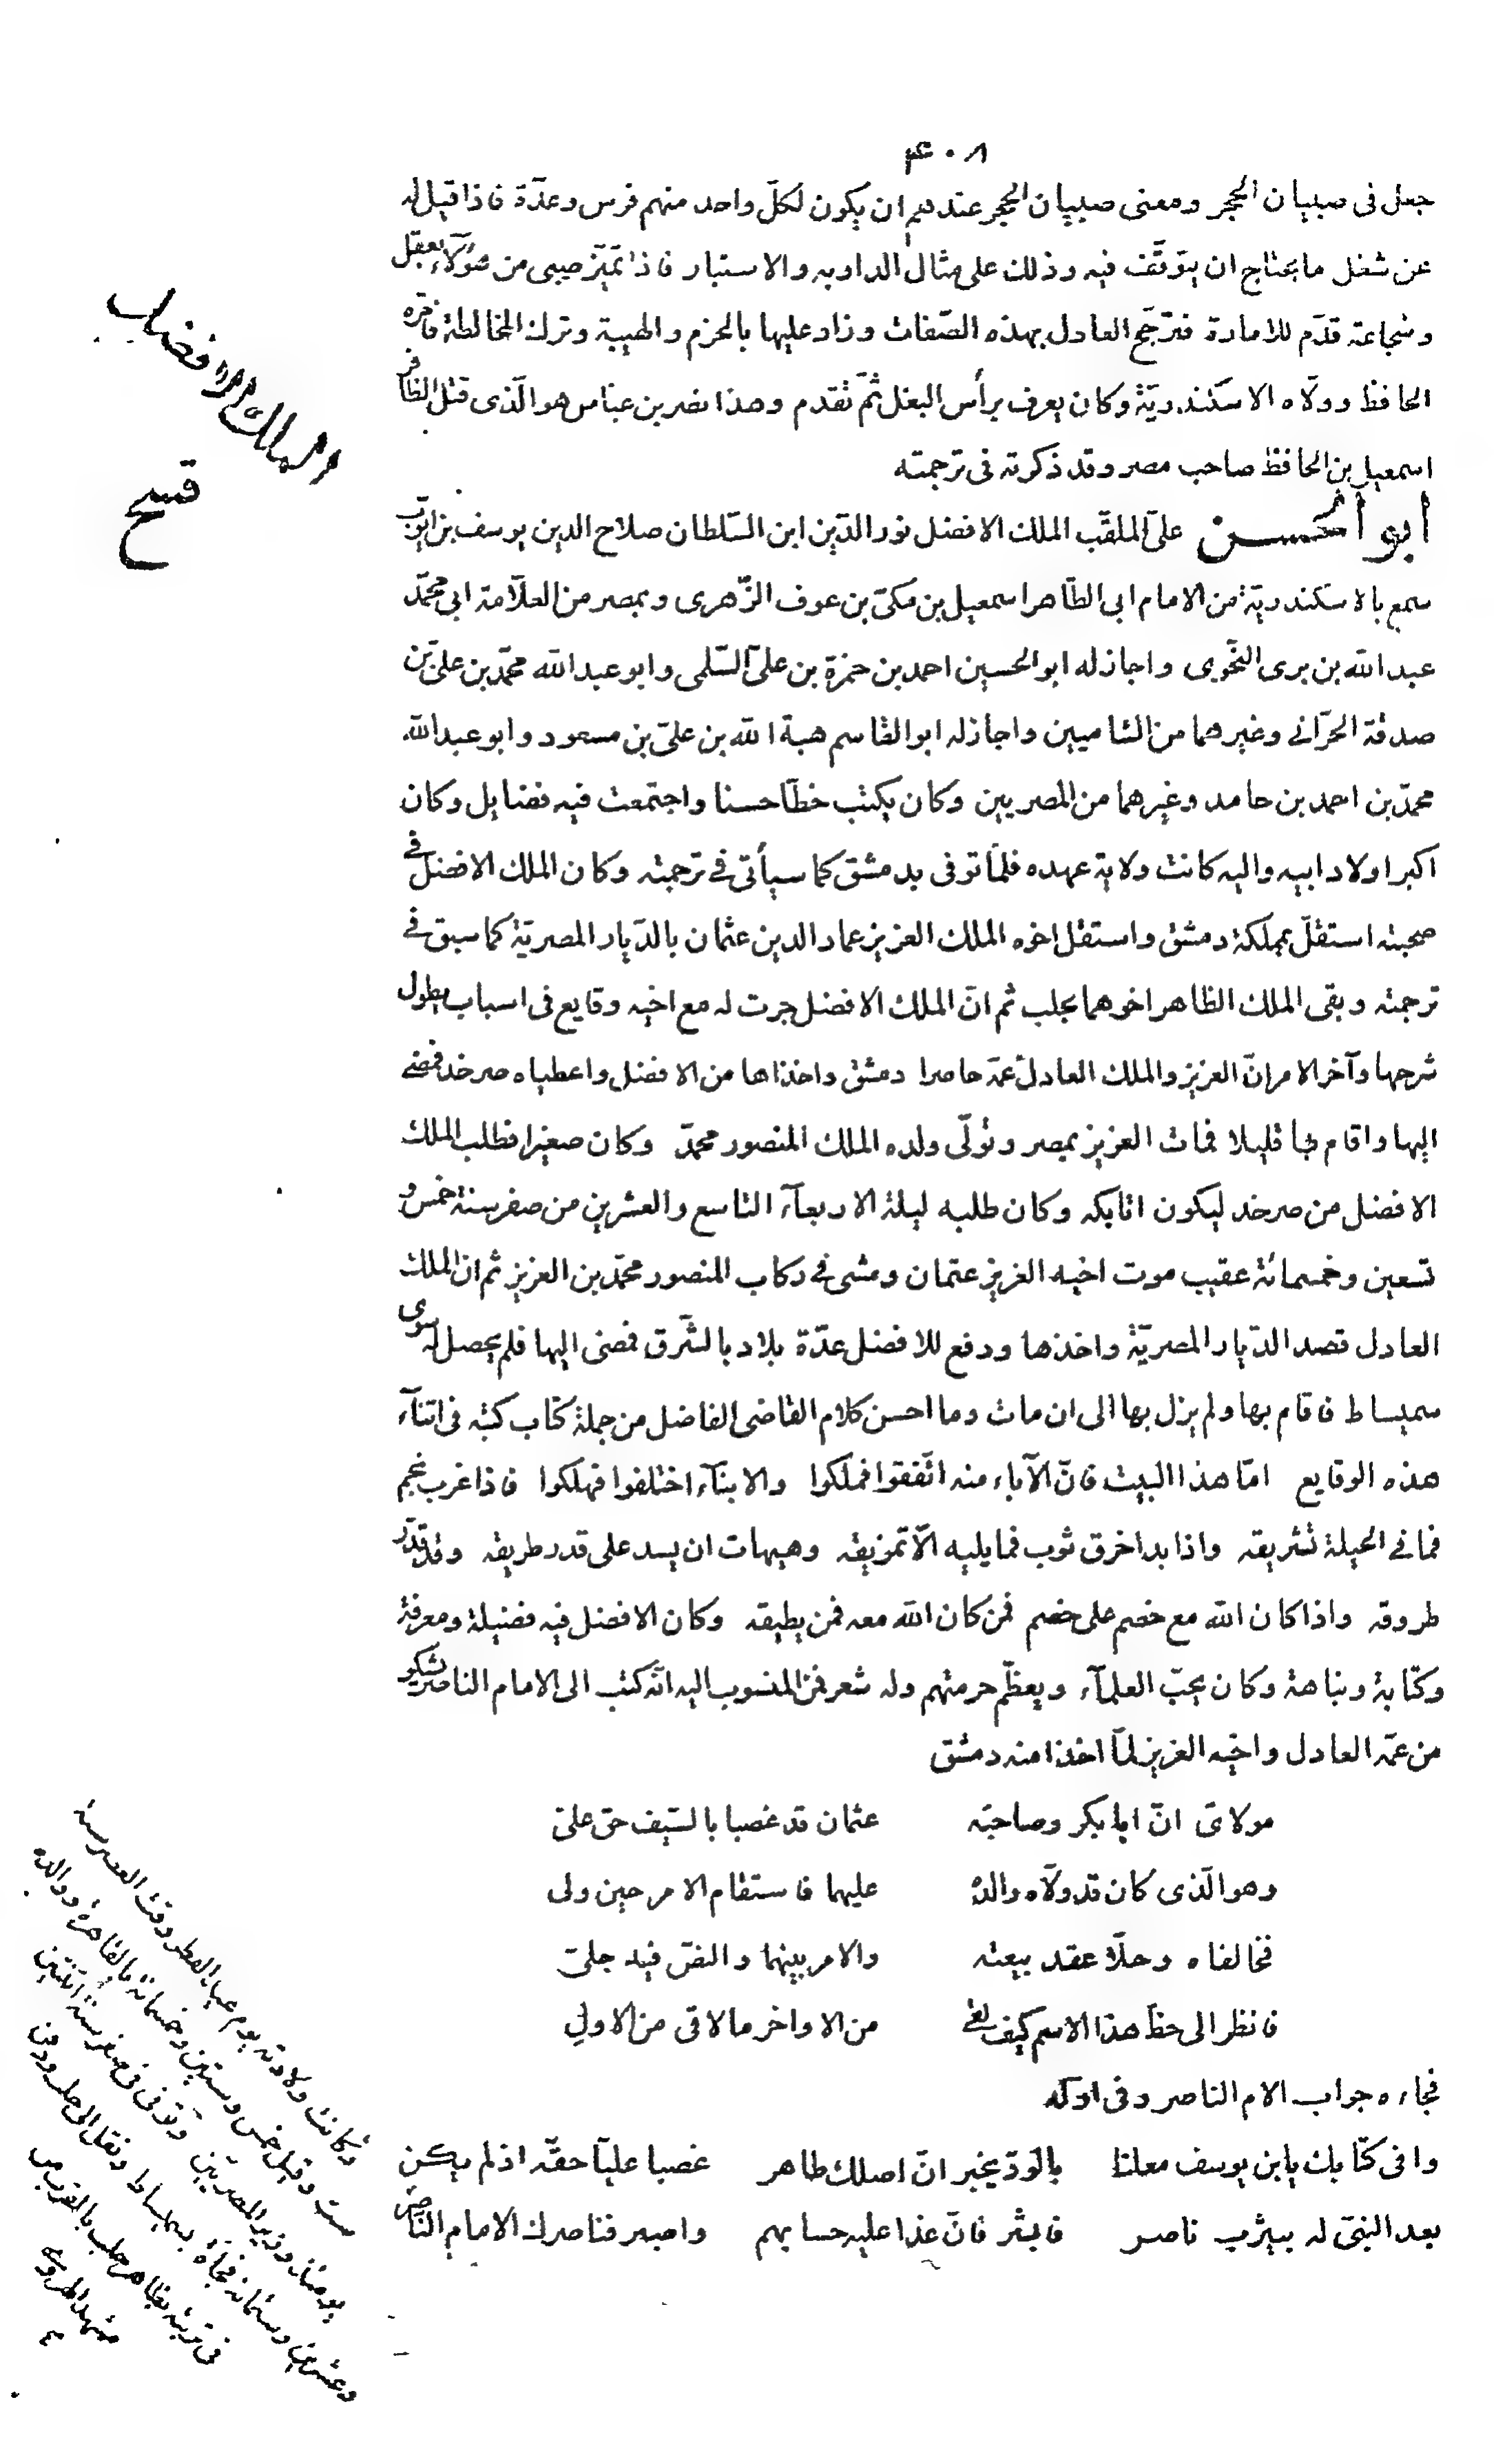 ٤٠٨
جعل فى صبيان الحجر ومعنى صبيان الحجر عندهم ان يكون لكلّ واحد منهم فرس وعدّة فاذا قيل له
عن شغل ما يحتاج ان يتوقّف فيه وذلك على مثال الداويه والاستبار فاذا تميّز صبى من هؤلآء بعقل
وشجاعة قدّم للامارة فترجّح العادل بهذه الصّفات وزاد عليها بالحزم والهيبة وترك المخالطة فامّره
الحافظ وولّاه الاسكندريّة وكان يعرف برأس البغل ثمّ تقدم وهذا نصر بن عباس هو الّذى قتل الظافر
اسمعيل بن الحافظ صاحب مصر وقد ذكرته فى ترجمته
ابو الحسن علىّ الملقّب الملك الافضل نور الدّين ابن السّلطان صلاح الدين يوسف بن ايّوب
سمع بالاسكندريّة من الامام ابى الطّاهر اسمعيل بن مكىّ بن عوف الزّهرى وبمصر من العلّامة ابى محمّد
عبد الله بن برى النّحوى واجاز له ابو الحسين احمد بن حمزة بن علىّ السّلمى وابو عبد الله محمّد بن علىّ بن
صدقة الحرّانى وغيرهما من الشاميين واجاز له ابو القاسم هبة الله بن علىّ بن مسعود وابو عبد الله
محمّد بن احمد بن حامد وغيرهما من المصريين وكان يكتب خطّا حسنا واجتمعت فيه فضايل وكان
اكبر اولاد ابيه واليه كانت ولاية عهده فلمّا توفى بدمشق كما سيأتى فى ترجمته وكان الملك الافضل فى
صحبته استقلّ بمملكة دمشق واستقل اخوه الملك العزيز عماد الدين عثمان بالدّيار المصريّة كما سبق فى
ترجمته وبقى الملك الظاهر اخوهما بحلب ثم انّ الملك الافضل جرت له مع اخيه وقايع فى اسباب يطول
شرحها وآخر الامر انّ العزيز والملك العادل عمّه حاصرا دمشق واخذاها من الافضل واعطياه صرخد فمضى
اليها واقام بها قليلا فمات العزيز بمصر وتولّى ولده الملك المنصور محمّد وكان صغيرا فطلب الملك
الافضل من صرخد ليكون اتابكه وكان طلبه ليلة الاربعآء التاسع والعشرين من صفر سنة خمس و
تسعين وخمسمائة عقيب موت اخيه العزيز عثمان ومشى فى ركاب المنصور محمّد بن العزيز ثم ان الملك
العادل قصد الدّيار المصريّة واخذها ودفع للافضل عدّة بلاد بالشّرق فمضى اليها فلم يحصل له سوى
سميساط فاقام بها ولم يزل بها الى ان مات وما احسن كلام القاضى الفاضل من جملة كتاب كتبه فى اثنآء
هذه الوقايع امّا هذا البيت فانّ الآباء منه اتّفقوا فملكوا والابنآء اختلفوا فهلكوا فاذا غرب نجم
فما فى الحيلة تشريقه واذا بدا خرق ثوب فما يليه الّا تمزيقه وهيهات ان يسد على قدر طريقه وقد قدّر
طروقه واذا كان الله مع خصم على خصم فمن كان الله معه فمن يطيقه وكان الافضل فيه فضيلة ومعرفة
وكتابة ونباهة وكان يحبّ العلمآء ويعظّم حرمتهم وله شعر فمن المنسوب اليه انّه كتب الى الامام الناصر يشكو
من عمّه العادل واخيه العزيز لمّا اخذا منه دمشق
مولاى انّ ابا بكر وصاحبه عثمان قد غصبا بالسّيف حق على
وهو الّذى كان قد ولّاه والدهٔ عليهما فاستقام الامر حين ولى
فخالفاه وحلّا عقد بيعته والامر بينهما والنصّ فيه جلى
فانظر الى حظّ هذا الاسم كيف لقى من الاواخر ما لاقى من الاول
فجاءه جواب الامام الناصر وفى اوّله
وافى كتابك يابن يوسف معلنا بالودّ يخبر انّ اصلك طاهر غصبا عليّا حقّه اذ لم يكن
بعد النبىّ له بيثرب ناصر فابشر فانّ غدا عليه حسابهم واصبر فناصرك الامام النّاصر
الملك الافضل
وكانت ولادته يوم عيد الفطر وقت العصر سنة
ست وقيل خمس وستين وخمسمائة بالقاهرة ووالده
يومئذ وزير المصريّين وتوفى فى صفر سنة اثنتين
وعشرين وستمائة فجأة بسميساط ونقل الى حلب ودفن
فى تربته بظاهر حلب بالقرب من
مشهد الهروى